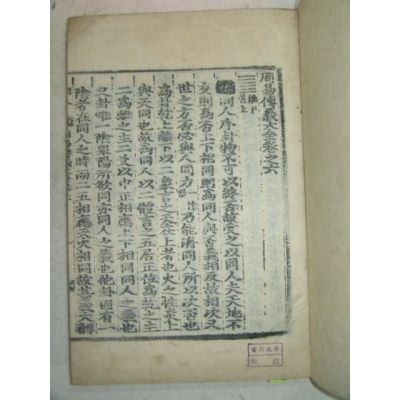 周易傳義大全卷之六
離下
乾上
同人序卦物不可以終否故受之以同人夫天地不
交則爲否上下相同則爲同人與否義相反故相次又
世之方否必與人同力乃能濟同人所以次否也
爲卦乾上離下以二象言之天在上者也火之性炎上
與天同也故爲同人以二體言之五居正位爲乾之主
二爲離之主二爻以中正相應上下相同同人之義也
又卦唯一陰衆陽所欲同亦同人之義也他卦固有一
陰者在同人之時而二五相應天火相同故其義大